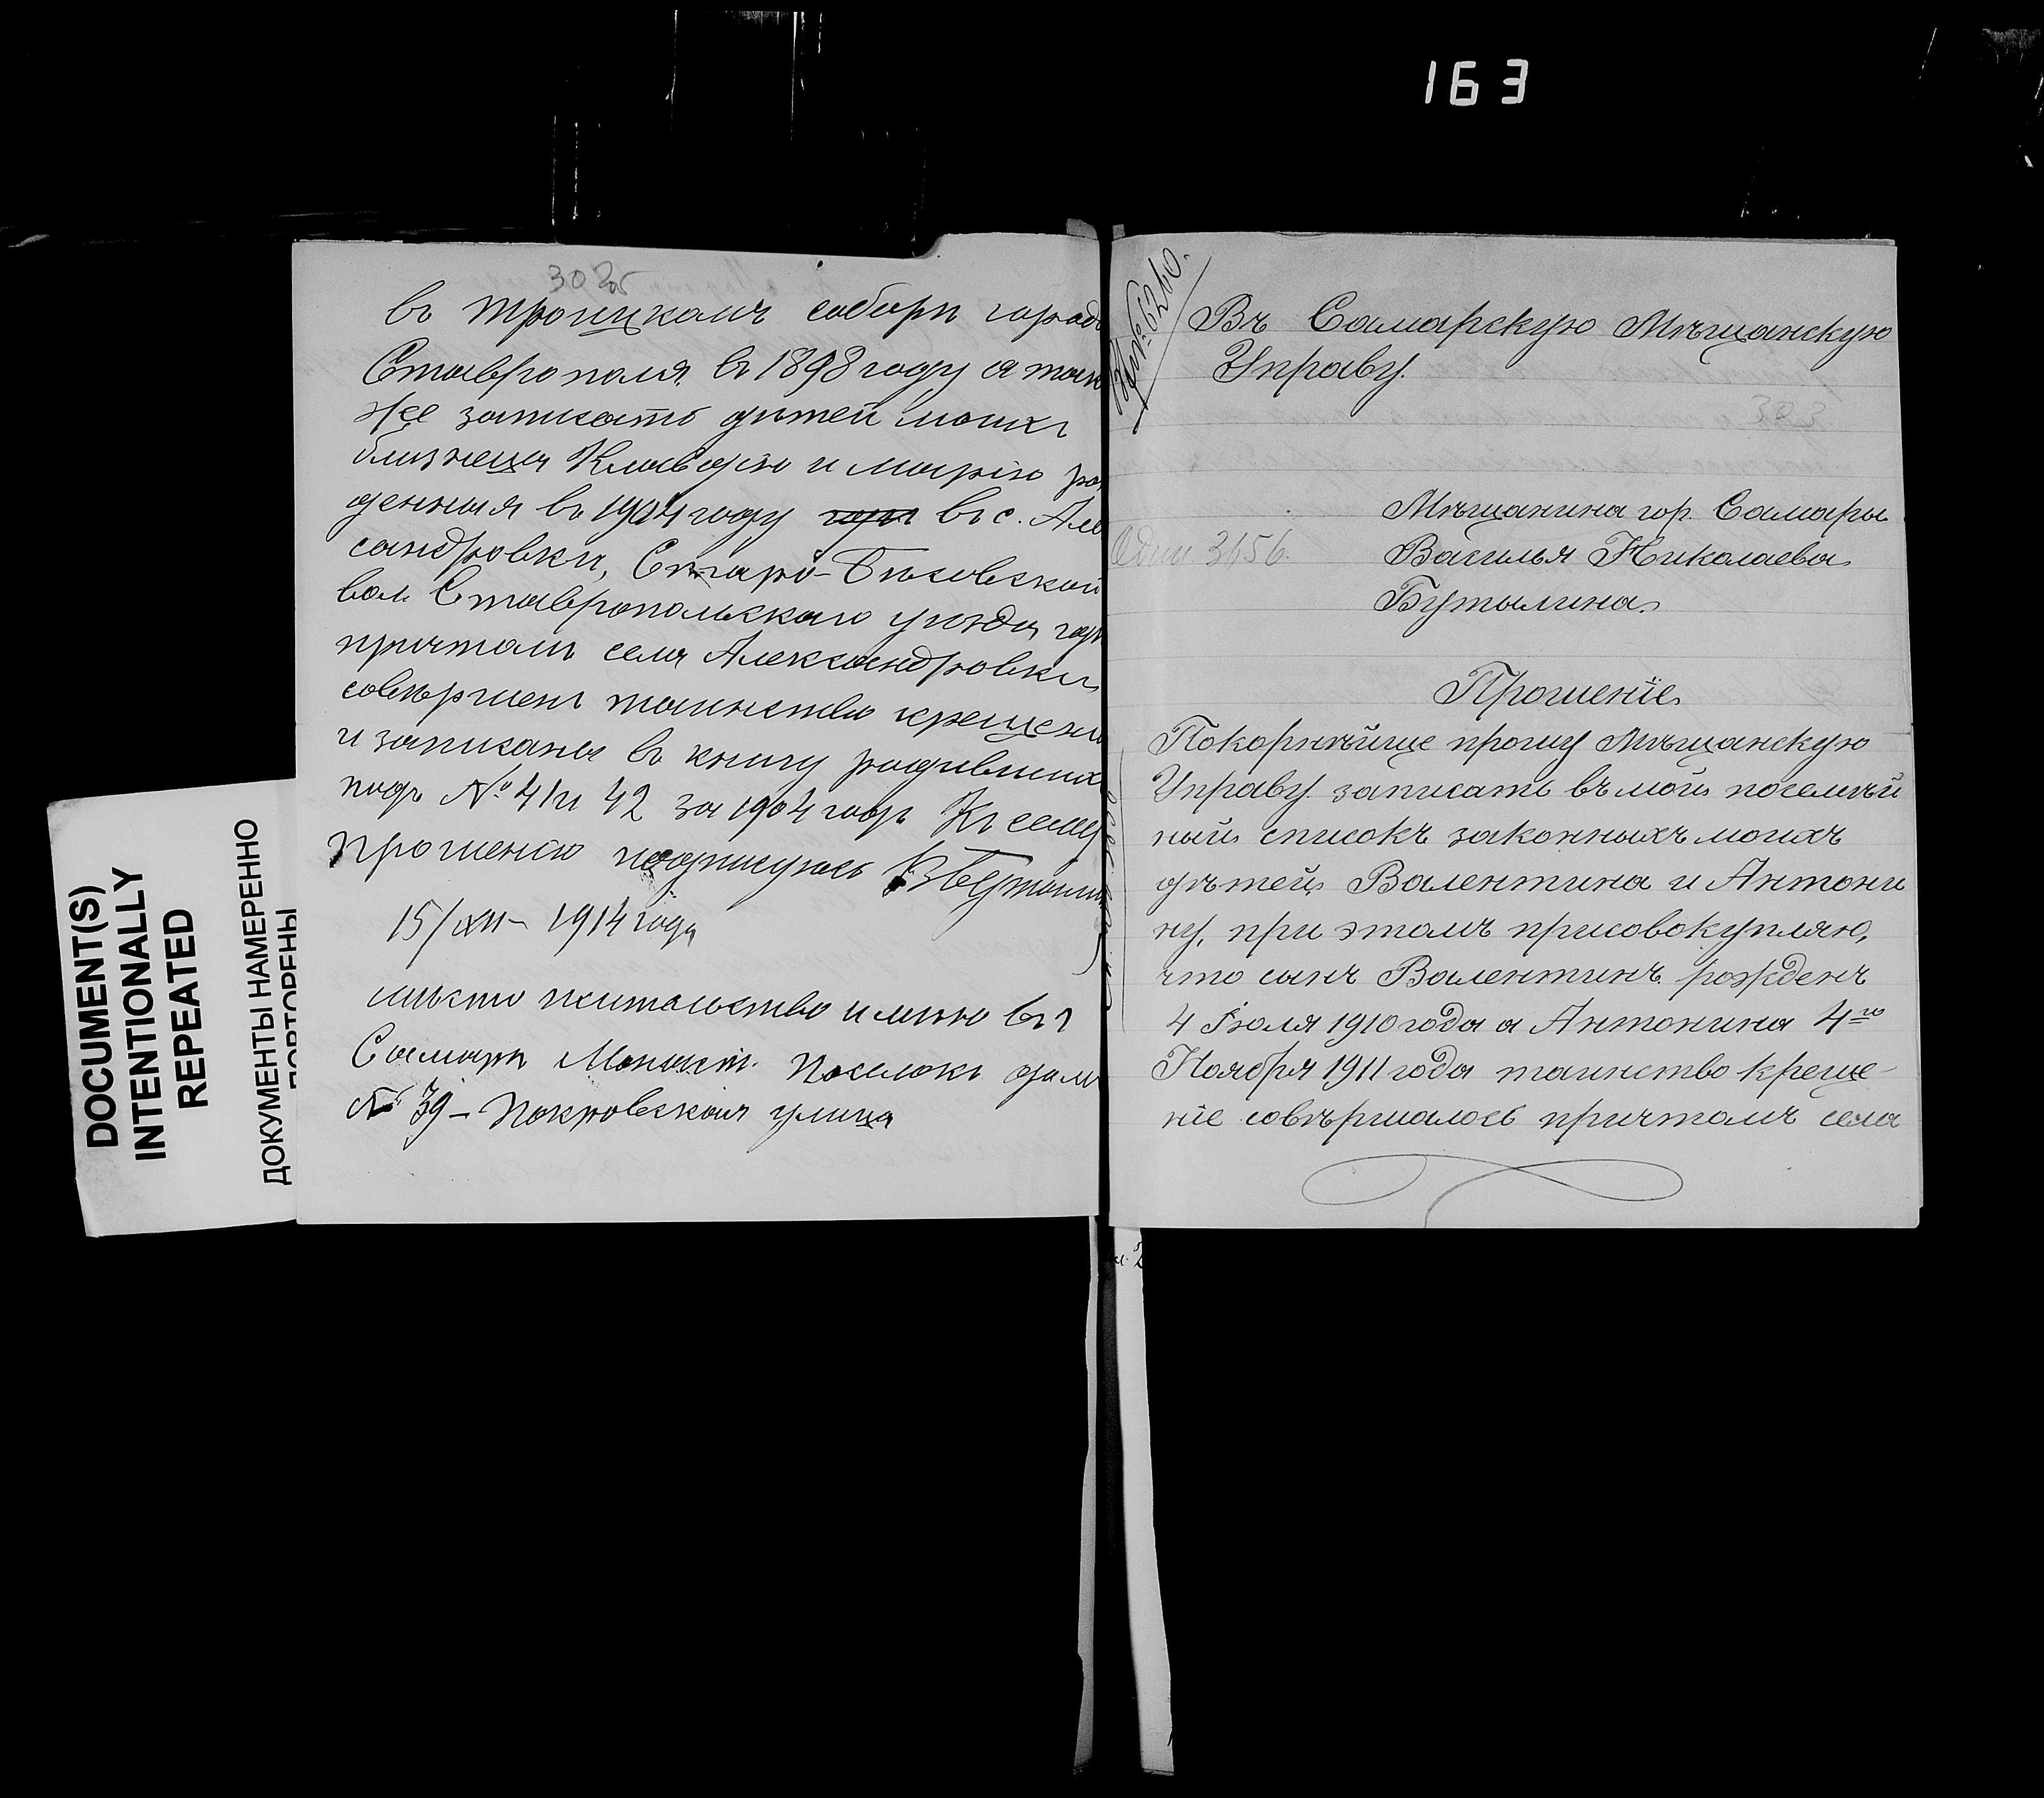 163
302об
въ троицкомъ соборѣ города
Ставрополя въ 1898 году а так
же записать дѣтей моихъ
близнеца Клавдію и Марію ро
денныя въ 1904 году въ с. Але
сандровки, Старо-Бѣсовской
вол. Ставропольскаго уѣзда
причтомъ села Александровки
совершенъ таинство крещени
и записаны въ книгу родившихъ
подъ № 41 и 42 за 1904 годъ Къ сему
прошенію подписуюсь В Бутылин
15/XII - 1914 года
мѣсто жительство имѣю въ г
Самарѣ Монаст. Поселокъ домъ
№ 39 - Покровская улица
DOCUMENT(S)
INTENTIONALLY
REPEATED
ДОКУМЕНТЫ НАМЕРЕННО
ПОВТОРЕНЫ
№ 6260.
Въ Самарскую Мѣщанскую
Управу.
303
Мѣщанина гор. Самары
Василья Николаева
Бутылина
3656.
Прошеніе
Покорнѣйще прошу Мѣщанскую
Управу записать въ мой посемѣй
ный списокъ законныхъ моихъ
дѣтей Валентина и Антони
ну, при этомъ присовокупляю,
что сынъ Валентинъ рожденъ
4 Іюля 1910 года а Антонина 4го
Ноября 1911 года таинство креще-
ніе совѣршалось причтомъ села